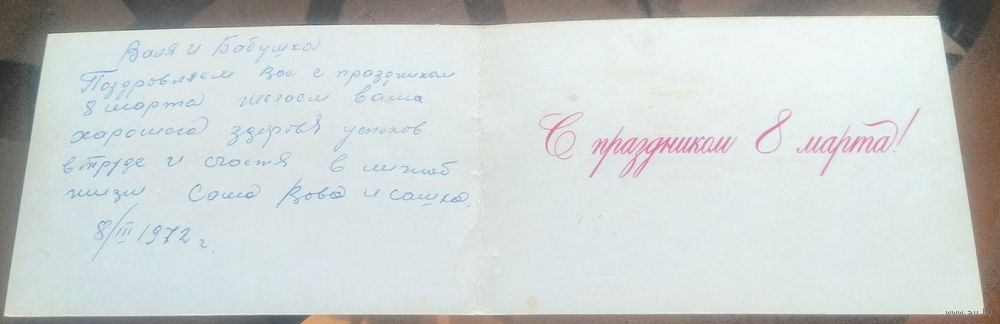 Валя и Бабушка
Поздровляем вас с праздником
8 марта желаем вам
харошего здоровя успехов
в труде и счастя в личной
жизни Саша Вова и Сашка.
8/III 1972 г.
С праздником 8 марта!
www.ay.by